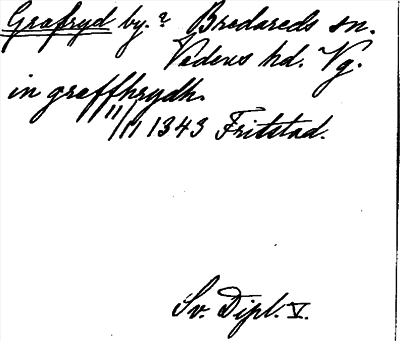 Grafryd by.? Bredareds sn.
Vedens hd. Vg.
in graffhrydh.
11/11 1343 Fritstad.
Sv. Dipl. V.